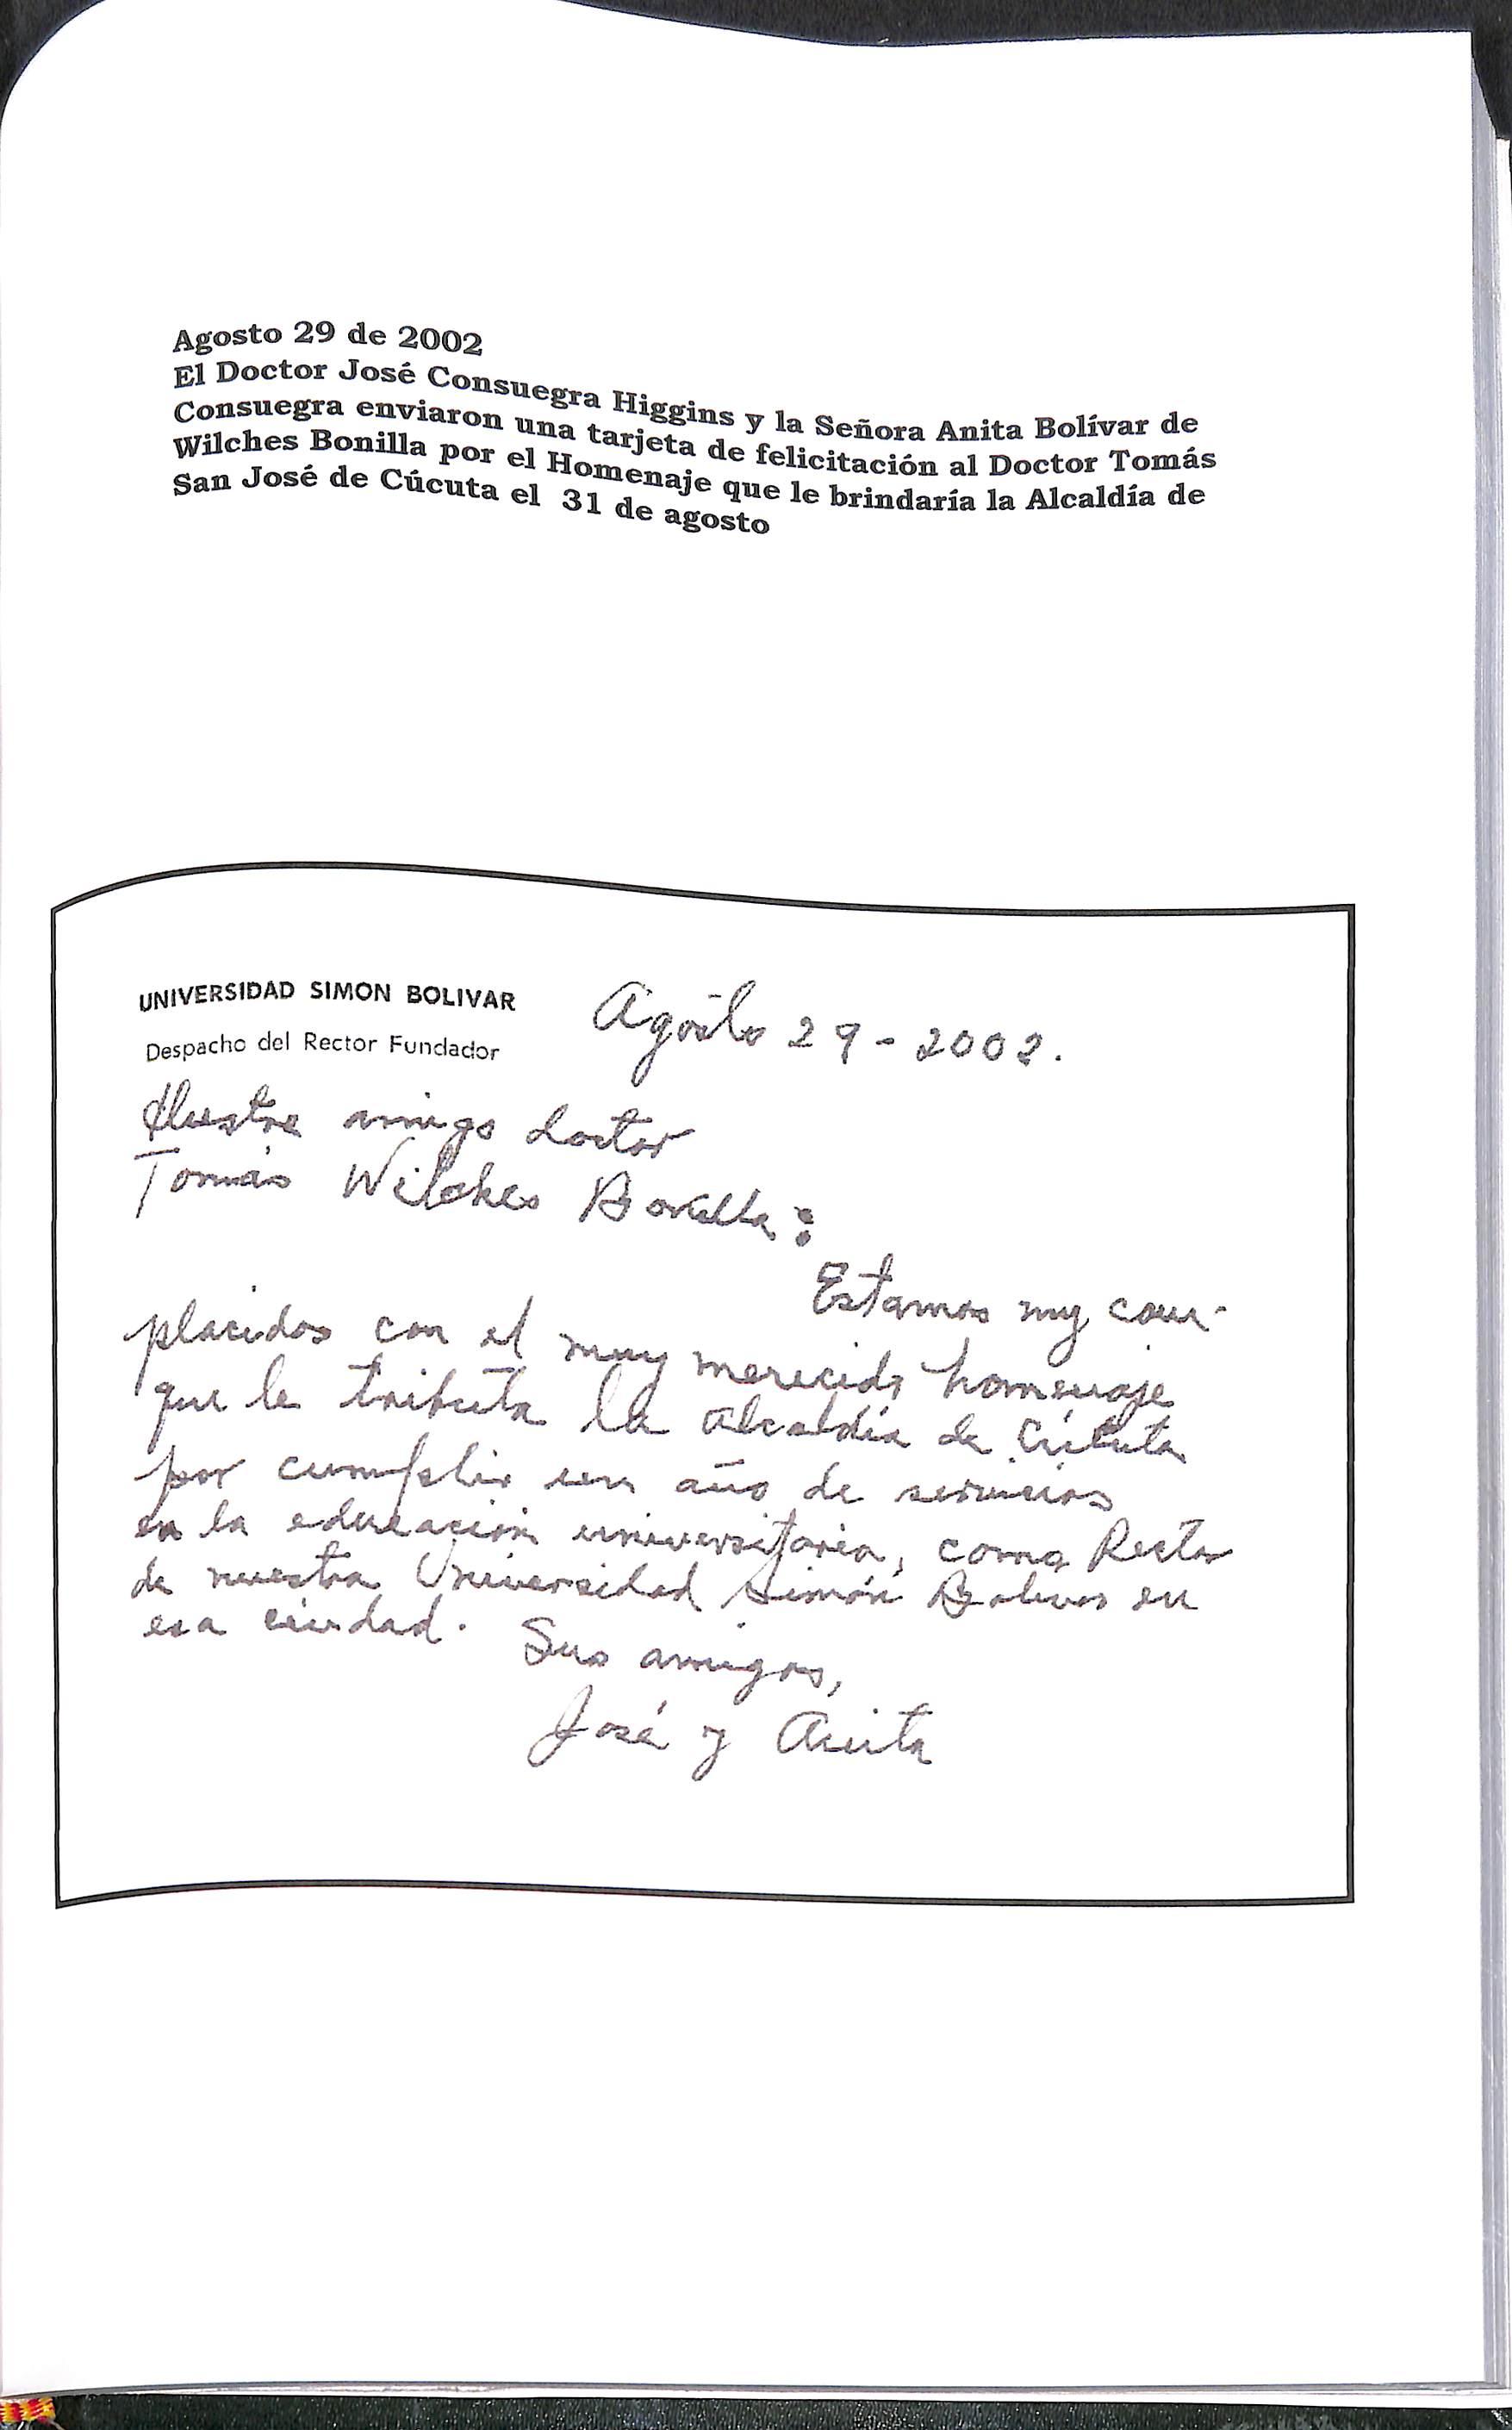 Agosto 29 de 2002
El Doctor José Consuegra Higgins y la Señora Anita Bolívar de
Consuegra enviaron una tarjeta de felicitación al Doctor Tomás
Wilches Bonilla por el Homenaje que le brindaría la Alcaldía de
San José de Cúcuta el 31 de agosto
UNIVERSIDAD SIMON BOLIVAR
Despacho del Rector Fundador
Agosto 29-2002.
Ilustre amigo doctor
Tomás Wilches Bonilla:
Estamos muy com-
placidos con el muy merecido homenaje
que le tributa la Alcaldía de Cúcuta
por cumplir un año de servicios
en la educación universitaria, como Rector
de nuestra Universidad Simón Bolívar en
esa ciudad. Sus amigos,
José y Anita